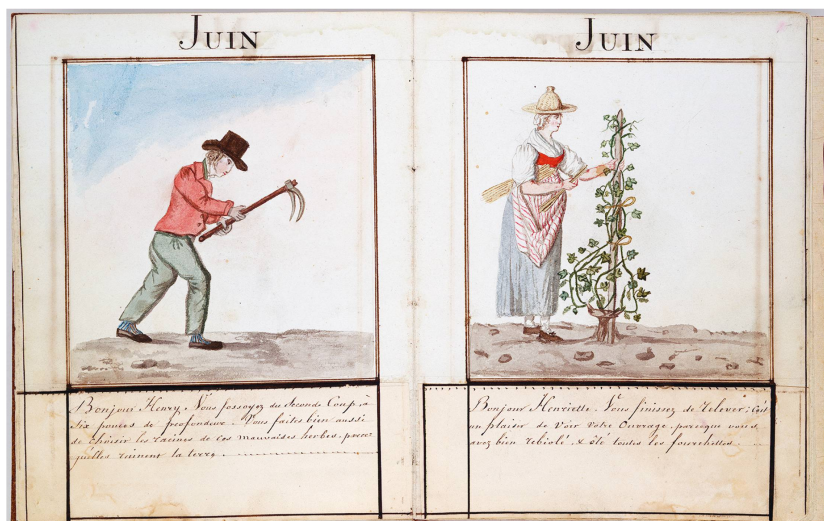 Juin
Bonjour Henry. Vous fossoyez du Seconde Coup, à
Six pouces de profondeur. Vous faites bien aussi
de choisir les racines de ces mauvaises herbes, parce
qu'elles ruinent la terre.
Juin
Bonjour Henriette. Vous finissez de relever; C'est
un plaisir de voir votre Ouvrage, parceque vous
avez bien rebiolé & ôté toutes les fourchettes.